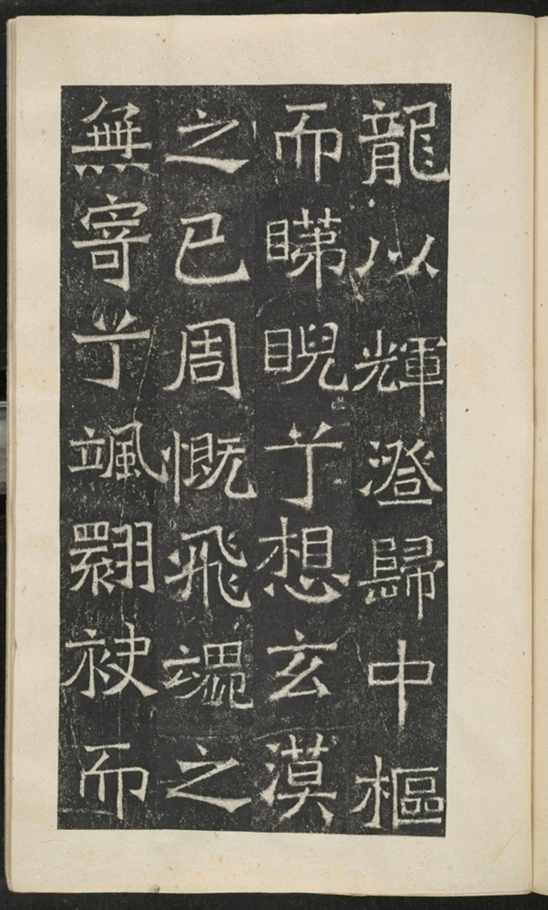 龍以輝澄歸中樞
而睇睨兮想玄漠
之已周慨飛魂之
無寄兮颯翾袂而